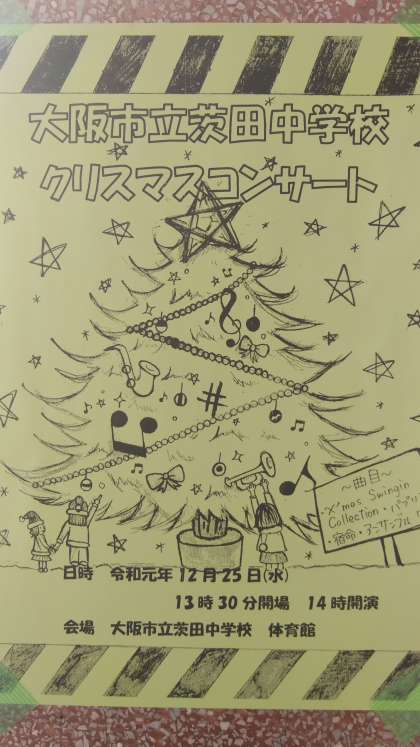 大阪市立茨田中学校
クリスマスコンサート
～曲目～
・X'mas Swingin
Collection・パプリ
・宿命・アンサンブル
日時 令和元年12月25日(水)
13時30分開場 14時開演
会場 大阪市立茨田中学校 体育館